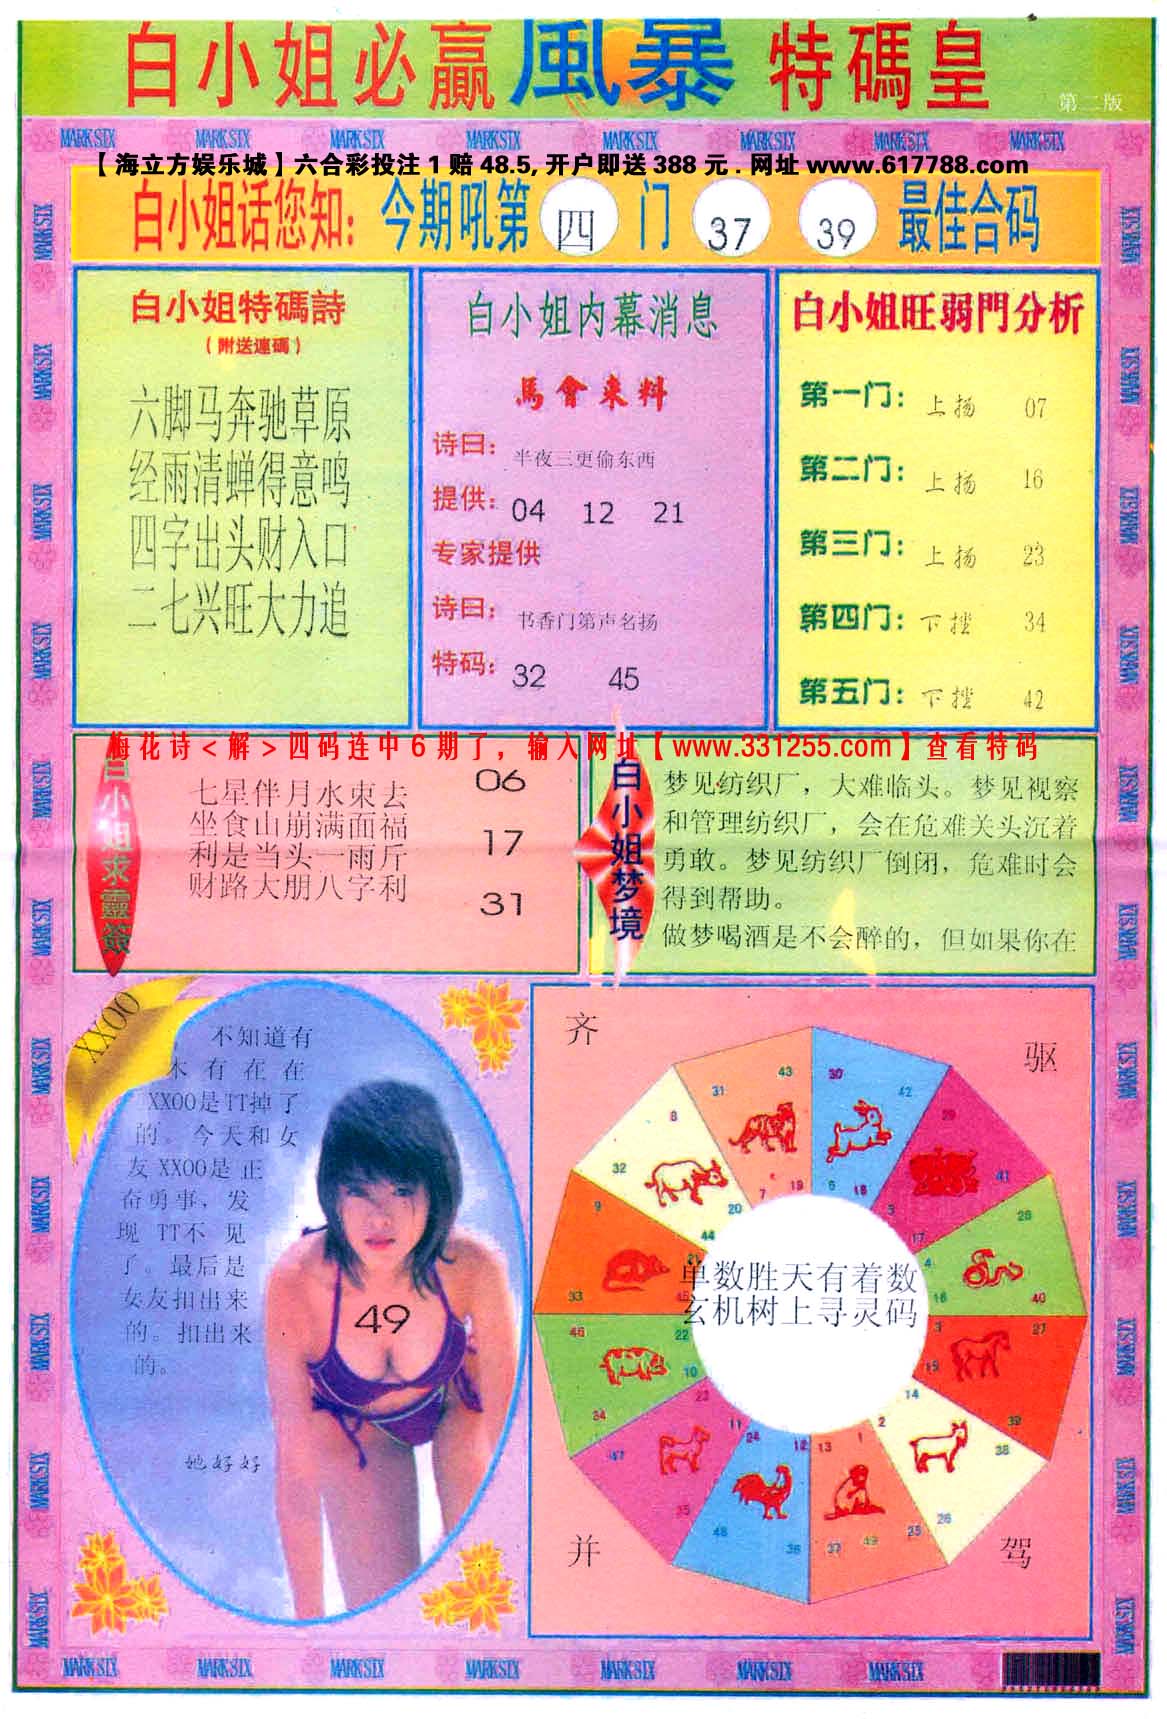 白小姐必贏風暴特碼皇
第二版
MARK SIX MARK SIX MARK SIX MARK SIX MARK SIX MARK SIX MARK SIX MARK SIX
【海立方娱乐城】六合彩投注1赔48.5,开户即送388元.网址www.617788.com
白小姐话您知: 今期吼第 四 门 37 39 最佳合码
白小姐特碼詩
(附送連碼)
六脚马奔驰草原
经雨清蝉得意鸣
四字出头财入口
二七兴旺大力追
白小姐内幕消息
馬會来料
诗曰: 半夜三更偷东西
提供: 04 12 21
专家提供
诗曰: 书香门第声名扬
特码: 32 45
白小姐旺弱門分析
第一门: 上扬 07
第二门: 上扬 16
第三门: 上扬 23
第四门: 下挫 34
第五门: 下挫 42
梅花诗<解>四码连中6期了,输入网址【www.331255.com】查看特码
白小姐求靈簽
七星伴月水東去
坐食山崩满面福
利是当头一雨斤
财路大朋八字利
06
17
31
白小姐梦境
梦见纺织厂，大难临头。梦见视察
和管理纺织厂，会在危难关头沉着
勇敢。梦见纺织厂倒闭，危难时会
得到帮助。
做梦喝酒是不会醉的，但如果你在
XXOO
不知道有
木有在在
XXOO是TT掉了
的。今天和女
友XXOO是正
奋勇事，发
现TT不见
了。最后是
女友扣出来
的。扣出来
的。
她好好
49
齐
驱
并
驾
31 43 7 19
30 42 6 18
29 41 5 17
28 40 4 16
27 39 3 15
26 38 2 14
25 37 49 1 13
24 36 48 12
23 35 47 11
22 34 46 10
21 33 45 9
20 32 44 8
单数胜天有着数
玄机树上寻灵码
MARK SIX MARK SIX MARK SIX MARK SIX MARK SIX MARK SIX MARK SIX